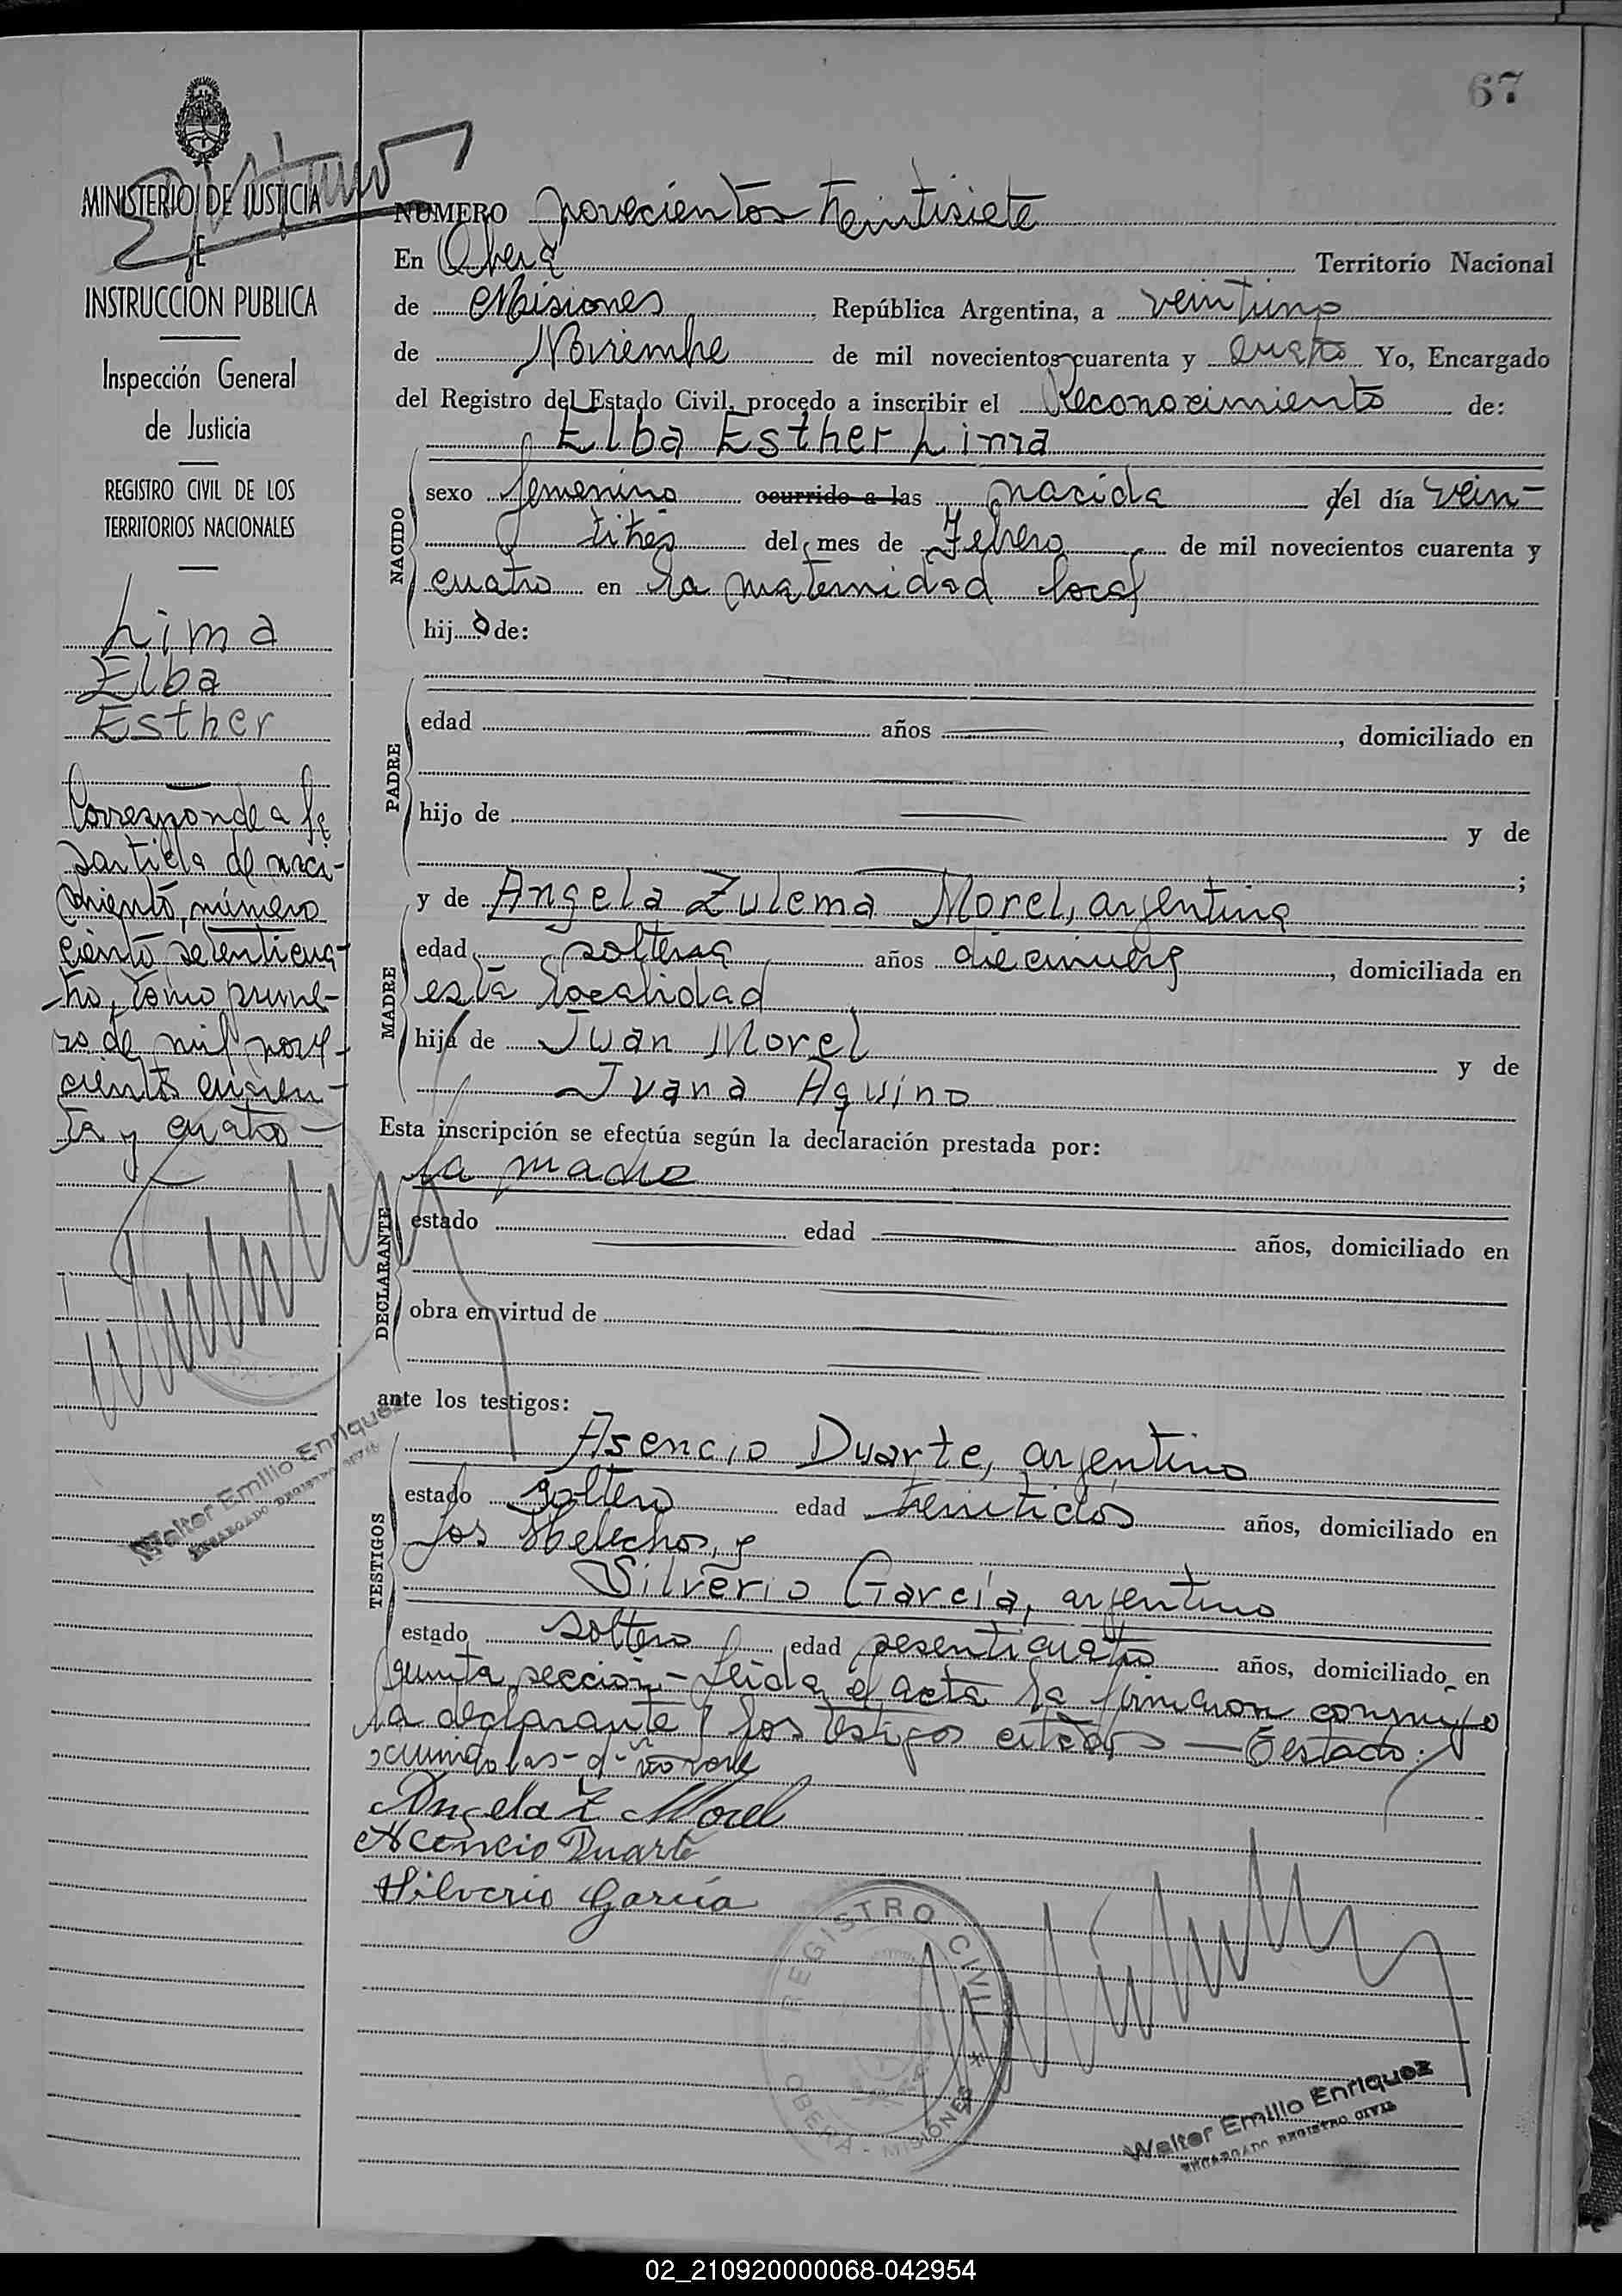 67
MINISTERIO DE JUSTICIA
E
INSTRUCCION PUBLICA
Inspección General
de Justicia
REGISTRO CIVIL DE LOS
TERRITORIOS NACIONALES
Lima
Elba
Esther
Corresponde a la
partida de naci-
miento, número
ciento setenticua-
tro, tomo prime-
ro de mil nove-
cientos cuaren-
ta y cuatro
Walter Emilio Enriquez
ENCARGADO REGISTRO CIVIL
NUMERO novecientos treintisiete
En Oberá Territorio Nacional
de Misiones, República Argentina, a veintiuno
de Noviembre de mil novecientos cuarenta y cuatro Yo, Encargado
del Registro del Estado Civil, procedo a inscribir el Reconocimiento de:
Elba Esther Lima
NACIDO
sexo femenino ocurrido a las nacida del día vein-
titrés del mes de Febrero de mil novecientos cuarenta y
cuatro en la maternidad local
hij a de:
PADRE
edad años , domiciliado en
hijo de y de
;
MADRE
y de Angela Zulema Morel, argentina
edad soltera años diecinueve, domiciliada en
esta localidad
hija de Juan Morel y de
Juana Aquino
Esta inscripción se efectúa según la declaración prestada por:
la madre
DECLARANTE
estado edad años, domiciliado en
obra en virtud de
ante los testigos:
TESTIGOS
Asencio Duarte, argentino
estado soltero edad treintidós años, domiciliado en
Los Helechos, y
Silverio García, argentino
estado soltero edad sesenticuatro años, domiciliado en
quinta sección - Leída el acta la firmaron conmigo
la declarante y los testigos citados — Testado:
ocurrido las - d - no vale
Angela Z Morel
Acencio Duarte
Silverio García
REGISTRO CIVIL
OBERA - MISIONES
Walter Emilio Enriquez
ENCARGADO REGISTRO CIVIL
02_210920000068-042954